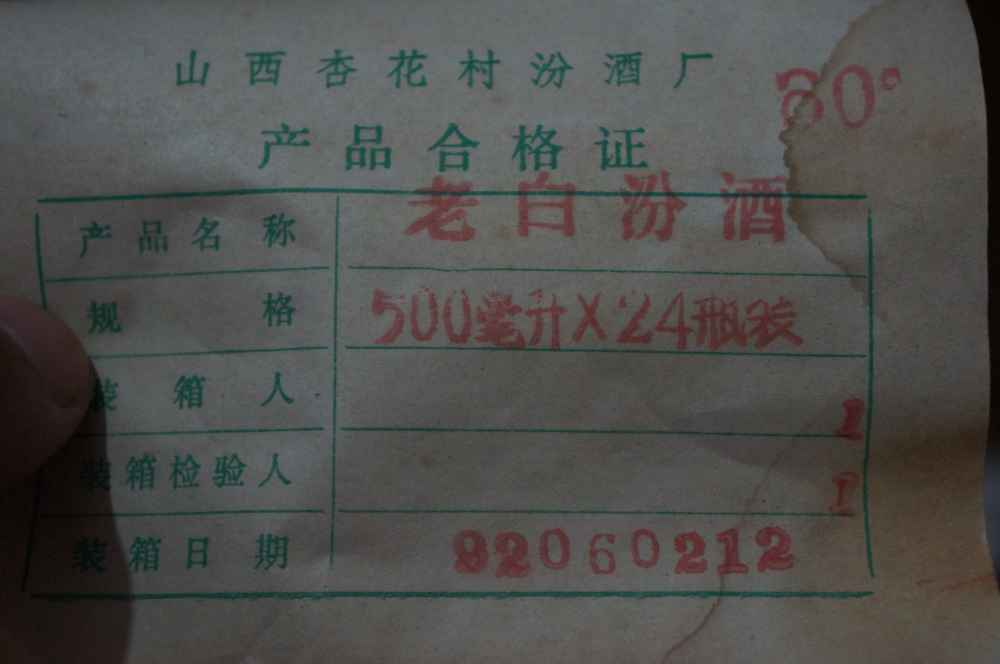 山西杏花村汾酒厂
60°
产品合格证
产品名称 老白汾酒
规格 500毫升X24瓶装
装箱人 1
装箱检验人 1
装箱日期 92060212